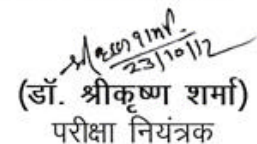 23/10/12
(डॉ. श्रीकृष्ण शर्मा)
परीक्षा नियंत्रक